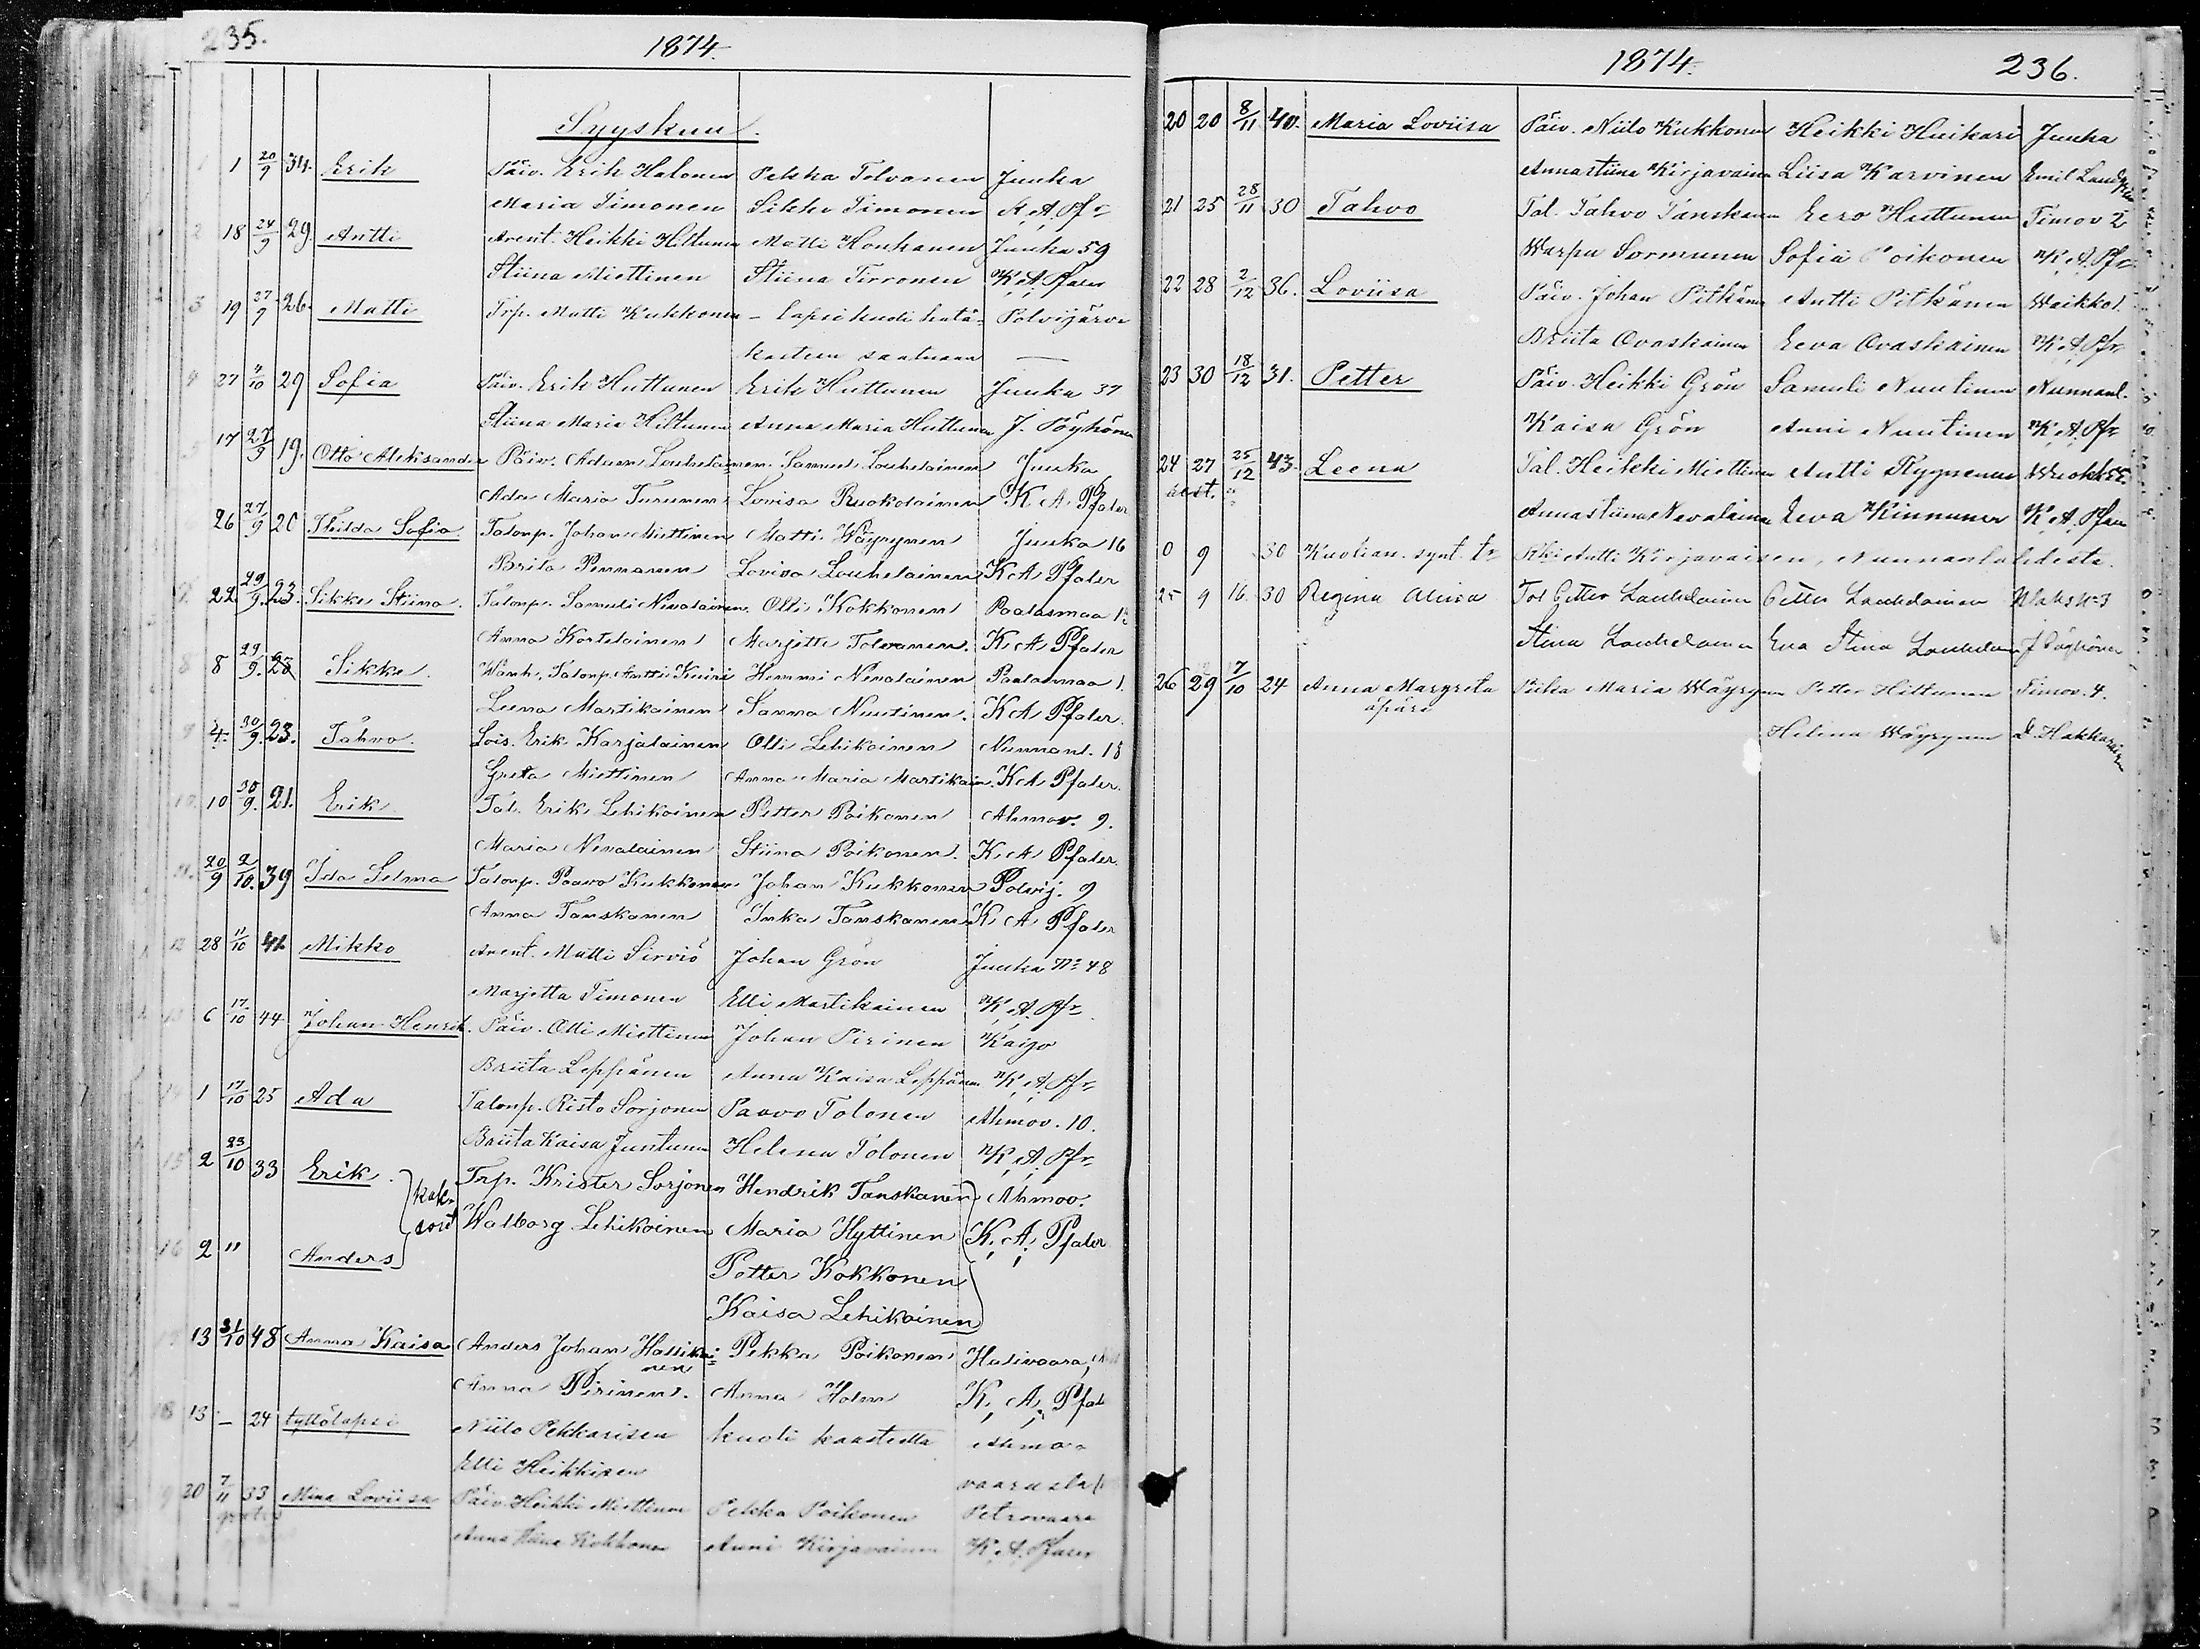 235.
1874.
Syyskuu.
1 1 20/9 34. Erik Päiv. Erik Halonen Pekka Tolvanen Juuka
Maria Timonen Sikke Timonen K. A. Pfr
2 18 24/9 29. Antti Arent. Heikki Hiltunen Matti Honkanen Juuka 59
Stiina Miettinen Stiina Tirronen K. A. Pfaler
3 19 27/9 26. Matti Trp. Matti Kukkonen – lapsi kuoli hätä- Polvijärvi
kasteen saatuaan —
4 27 4/10 29 Sofia Päiv. Erik Huttunen Erik Huttunen Juuka 37
Stiina Maria Hiltunen Anna Maria Huttunen J. Pöyhönen
5 17 27/9 19. Otto Aleksander Päiv. Adam Louhelainen Samuel Louhelainen Juuka
Ada Maria Turunen Lovisa Ruokolainen K. A. Pfaler
26 27/9 20 Hilda Sofia Talonp. Johan Miettinen Matti Wäyrynen Juuka 16
Brita Pennanen Lovisa Louhelainen K A Pfaler
22. 29/9. 23. Sikke Stiina. Talonp. Samuli Nevalainen. Olli Kokkonen Paalasmaa
Anna Kortelainen Marjetta Tolvanen. K. A Pfaler
8 8 29/9. 28 Sikke. Wanh. Talonp. Antti Kuiri Hemmi Nevalainen Paalasmaa 1.
Leena Martikainen Sanna Nuutinen. K A Pfaler.
9 4. 30/9. 23. Tahvo. Lois. Erik Karjalainen Olli Lehikoinen Nunnanl. 18
Greta Miettinen Anna Maria Martikain. K A Pfaler.
10. 10 30/9. 21. Erik Tal. Erik Lehikoinen Petter Poikonen Ahmov. 9.
Maria Nevalainen Stiina Poikonen. K. A Pfaler.
11. 20/9 2/10. 39 Ida Selma Talonp. Paavo Kukkonen Johan Kukkonen Polvij. 9
Anna Tanskanen Inka Tanskanen K. A Pfaler
12 28 11/10 41. Mikko Arent. Matti Sirviö Johan Grön Juuka No 48
Marjetta Timonen Elli Martikainen K. A. Pfr
13 6 17/10 44 Johan Henrik. Päiv. Olli Miettinen Johan Pirinen Kajoo
Briita Leppänen Anna Kaisa Leppänen K. A. Pfr
14 1 17/10 25 Ada Talonp. Risto Sorjonen Paavo Tolonen Ahmov. 10.
Briita Kaisa Juntunen Helena Tolonen K. A. Pfr
15 2 23/10 33 Erik. kak- Trp. Krister Sorjonen Hendrik Tanskanen Ahmov.
soid Walborg Lehikoinen Maria Hyttinen K. A. Pfaler
16 2 " Anders Petter Kokkonen
Kaisa Lehikoinen
17 13 31/10 48 Anna Kaisa Anders Johan Hassikai- Pekka Poikonen Halivaara,
nen
Anna Pirinen. Anna Holm K. A. Pfal
18 13 – 24 tyttölapsi Niilo Pekkarisen kuoli kastetta Ahmo-
Elli Heikkisen vaarasta
20 7/11 33 Mina Loviisa Päiv. Heikki Miettinen Pekka Poikonen Petrovaara
Anna Stiina Kokkonen Anni Kirjavainen K. A. Pfaler
1874.
236.
20 20 8/11 40. Maria Loviisa Päiv. Niilo Kukkonen Heikki Huikari Juuka
Annastiina Kirjavainen Liisa Karvinen Emil
21 25 28/11 30 Tahvo Tal. Tahvo Tanskanen Eero Huttunen Timov 2
Warpu Sormunen Sofia Poikonen K. A. Pfr
22 28 2/12 36. Loviisa Päiv. Johan Pitkänen Antti Pitkänen Waikko 1.
Briita Ovaskainen Eeva Ovaskainen K. A. Pfr
23 30 18/12 31. Petter Päiv. Heikki Grön Samuli Nuutinen Nunnanl.
Kaisa Grön Anni Nuutinen K. A. Pfr
24 27 25/12 43. Leena Tal. Heikki Miettinen Antti Ryynänen
Annastiina Nevalainen Eeva Kinnunen K. A. Pfaler
0 9 30 Kuollean. synt. Antti Kirjavaisen, Nunnanlahdesta.
25 9 16. 30 Regina Alvisa Tal Petter Louhelainen Petter Louhelainen No 3
Stina Louhelainen Eva Stina Louhelain J Pöyhönen
26 29 7/10 24 Anna Margreta Piika Maria Wäyrynen Petter Hiltunen Timov. 4.
äpärä
Helena Wäyrynen D. Hakkarainen